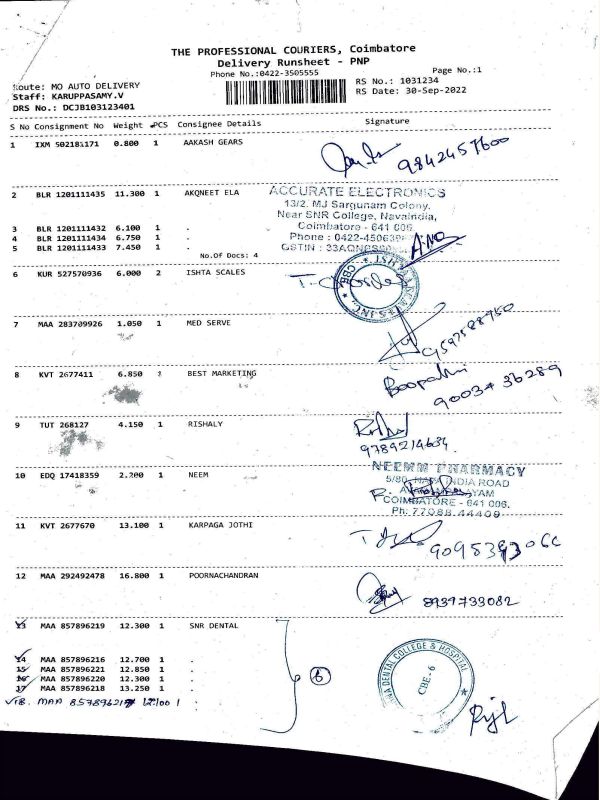 THE PROFESSIONAL COURIERS, Coimbatore
Delivery Runsheet - PNP
Phone No.:0422-3505555
Page No.:1
Route: MO AUTO DELIVERY
RS No.: 1031234
Staff: KARUPPASAMY.V
RS Date: 30-Sep-2022
DRS No.: DCJB103123401
S No Consignment No Weight PCS Consignee Details Signature
1 IXM 502181171 0.800 1 AAKASH GEARS
9842457600
2 BLR 1201111435 11.300 1 AKQNEET ELA
ACCURATE ELECTRONICS
13/2. MJ Sargunam Colony.
Near SNR College, Navaindia,
3 BLR 1201111432 6.100 1 .
Coimbatore - 641 006
4 BLR 1201111434 6.750 1 .
Phone : 0422-450639
5 BLR 1201111433 7.450 1 .
GSTIN :
No.Of Docs: 4
6 KUR 527570936 6.000 2 ISHTA SCALES
CBE.
7 MAA 283709926 1.050 1 MED SERVE
8 KVT 2677411 6.850 BEST MARKETING
Boopathi
90034 36289
9 TUT 268127 4.150 1 RISHALY
9789214634
NEEMM PHARMACY
10 EDQ 17418359 2.200 1 NEEM
5/80, NAVA INDIA ROAD
COIMBATORE - 641 006.
Ph: 77088 44409
11 KVT 2677670 13.100 1 KARPAGA JOTHI
12 MAA 292492478 16.800 1 POORNACHANDRAN
8939733082
13 MAA 857896219 12.300 1 SNR DENTAL
14 MAA 857896216 12.700 1 .
15 MAA 857896221 12.850 1 .
16 MAA 857896220 12.300 1 .
17 MAA 857896218 13.250 1 .
6
DENTAL COLLEGE & HOSPITAL
CBE - 6
18. MAA 857896217 12.100 1